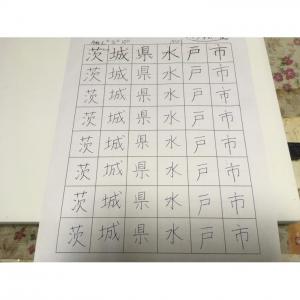 茨城県水戸市
茨城県水戸市
茨城県水戸市
茨城県水戸市
茨城県水戸市
茨城県水戸市
茨城県水戸市
茨城県水戸市